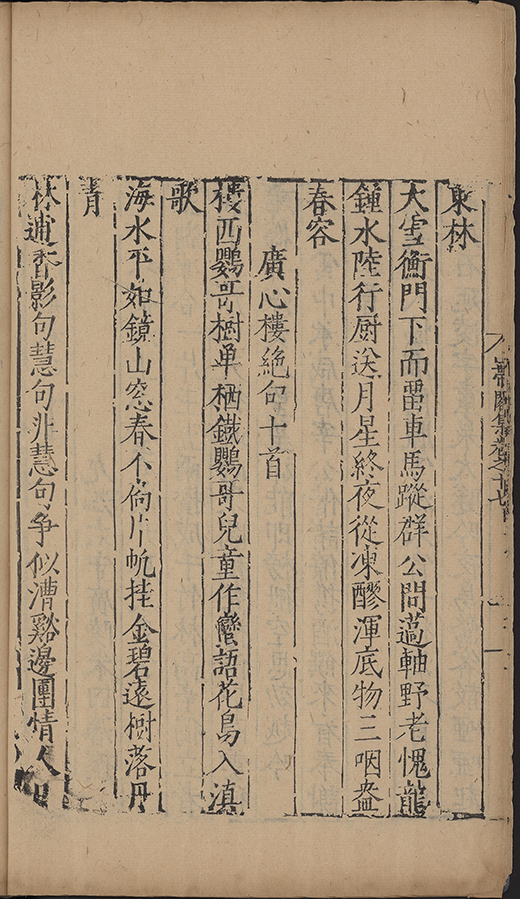 東林
大雪衡門下而留車馬蹤群公問薖軸野老愧龍
鍾水陸行厨送月星終夜從凍醪渾底物三咽盎
春容
廣心樓絶句十首
樓西鸚哥樹单栖鐵鸚哥兒童作蠻語花鳥入滇
歌
海水平如鏡山窓春不倘片帆挂金碧遠樹落丹
青
林逋香影句慧句非慧句争似漕谿邊團情人
集卷之十七